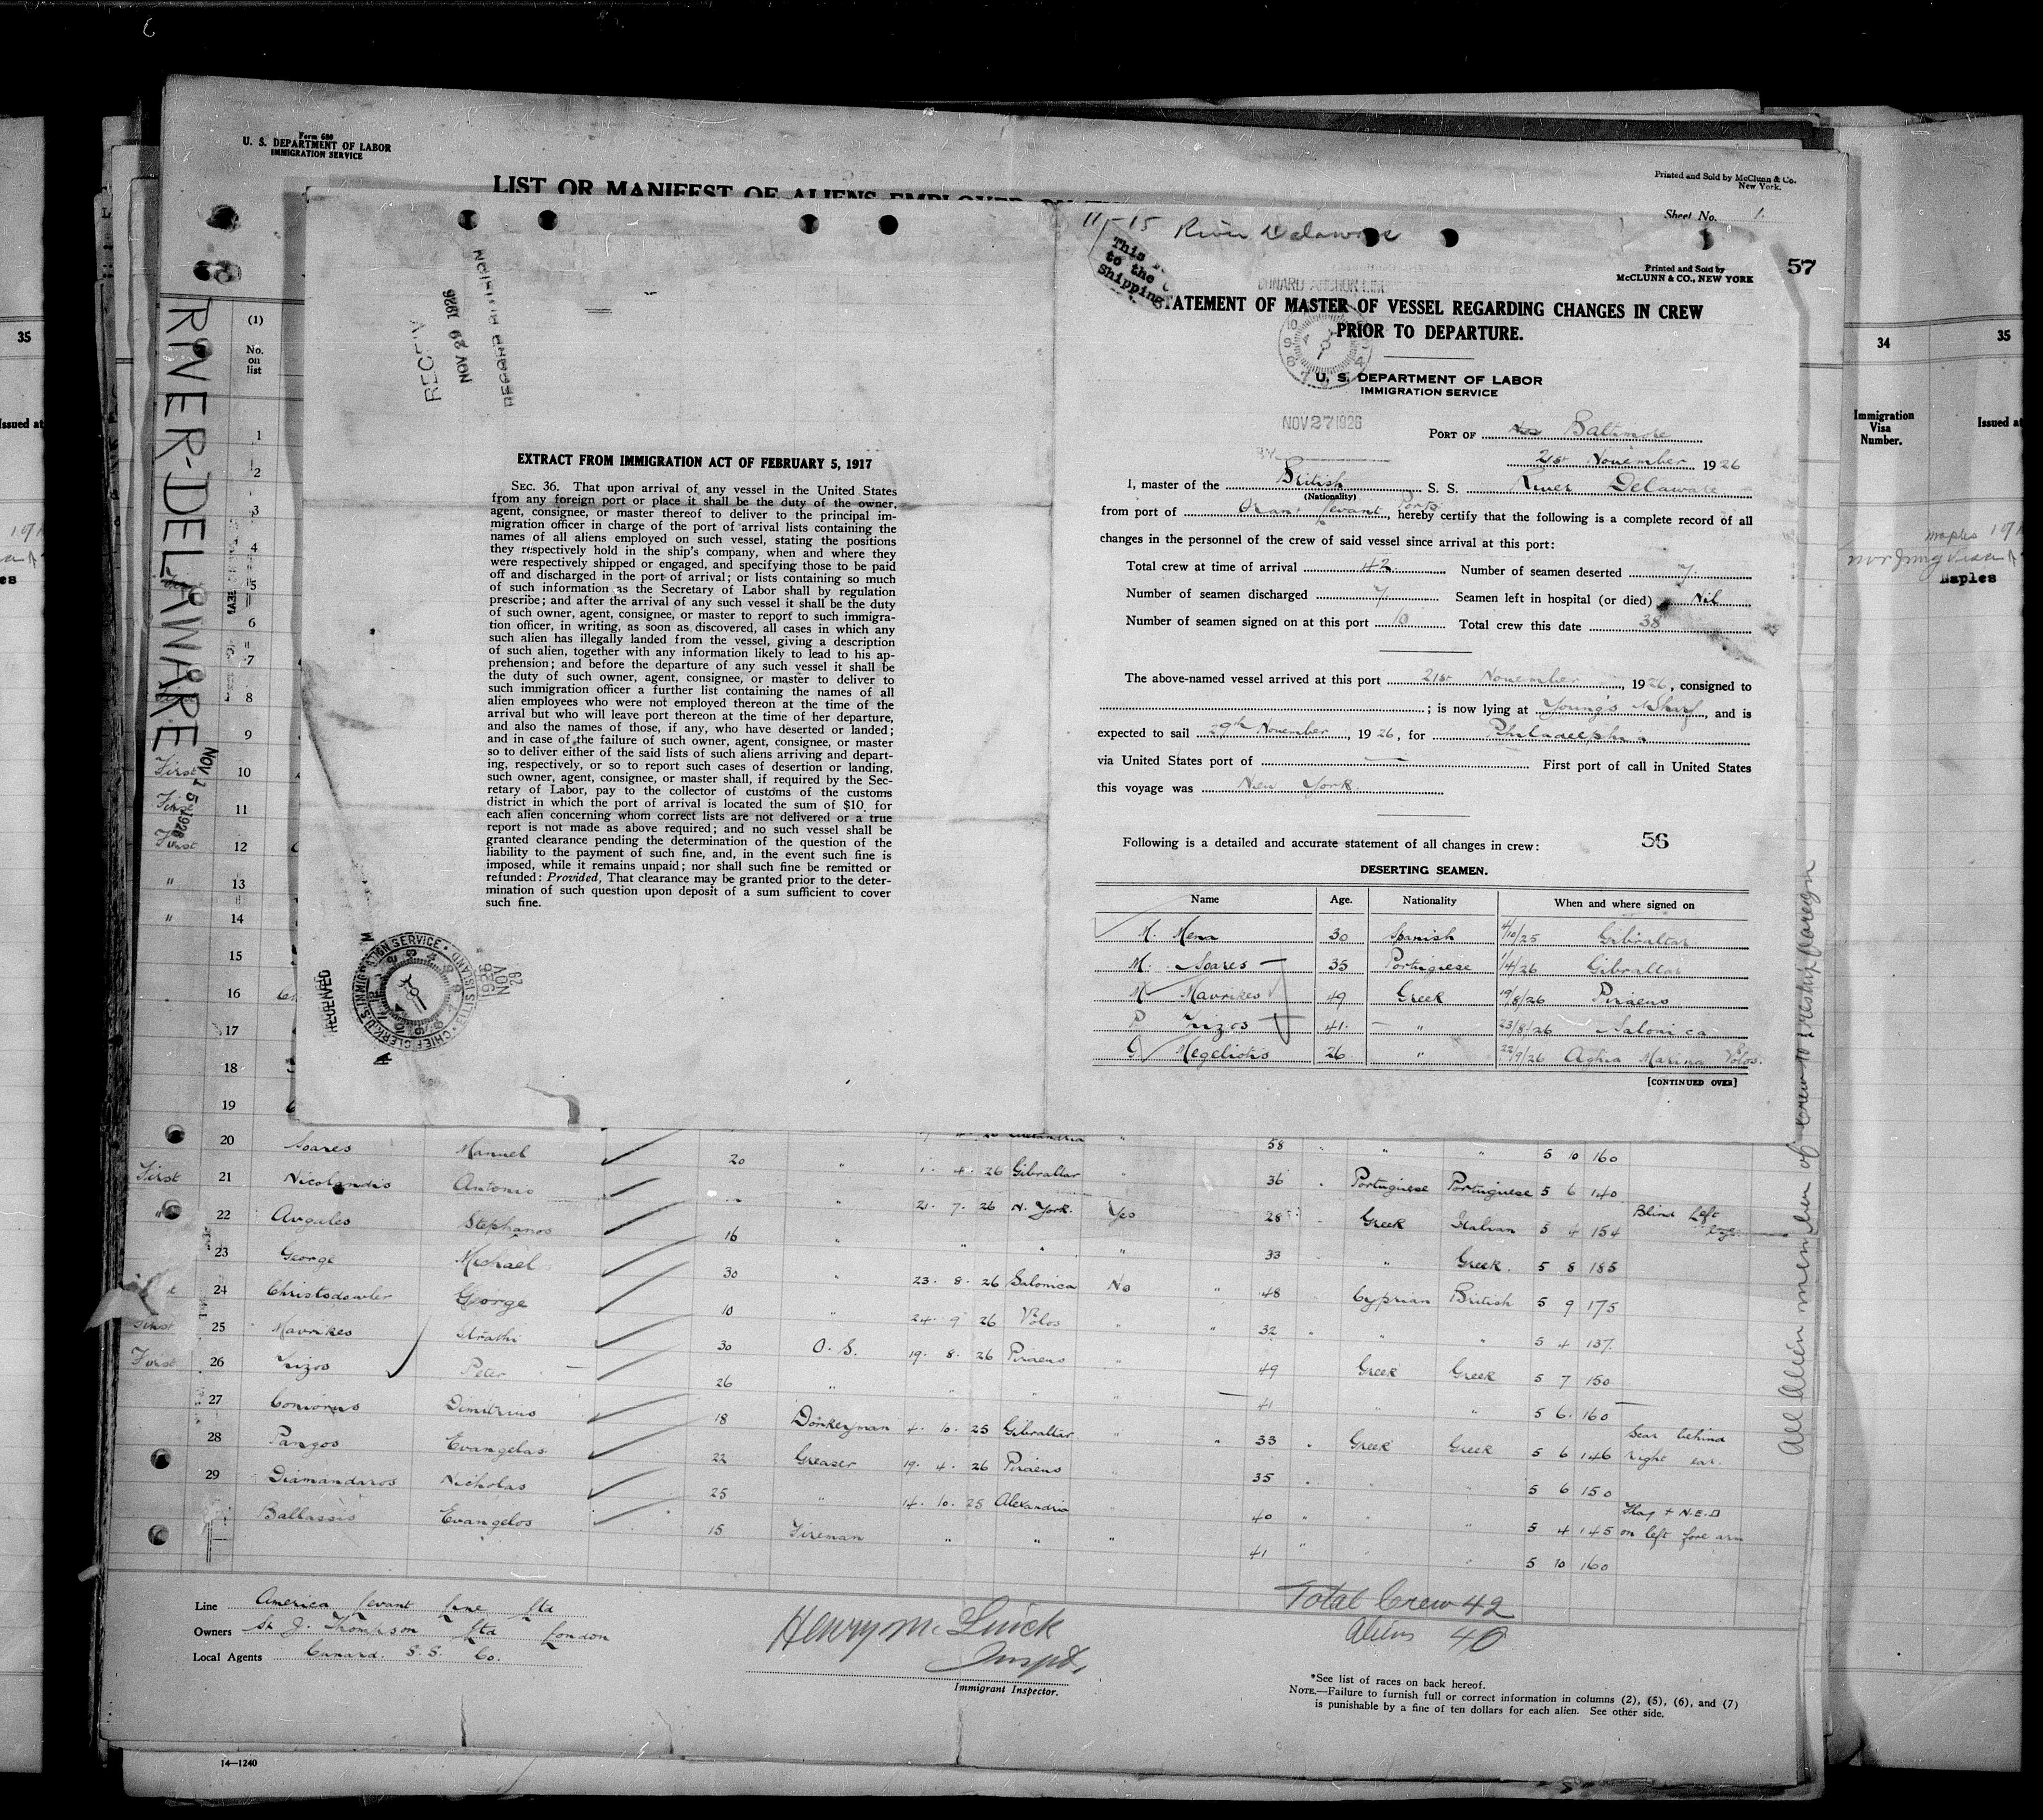 Form 680
U. S. DEPARTMENT OF LABOR
IMMIGRATION SERVICE
LIST OR MANIFEST OF ALIENS EMPLOYED ON
Printed and Sold by McClunn & Co.
New York.
Sheet No. 1.
RIVER-DELAWARE
NOV 15 1926
(1)
No.
on
list
RECEIV
NOV 29 1926
RECORD DIVISION
EXTRACT FROM IMMIGRATION ACT OF FEBRUARY 5, 1917
SEC. 36. That upon arrival of any vessel in the United States
from any foreign port or place it shall be the duty of the owner,
agent, consignee, or master thereof to deliver to the principal im-
migration officer in charge of the port of arrival lists containing the
names of all aliens employed on such vessel, stating the positions
they respectively hold in the ship's company, when and where they
were respectively shipped or engaged, and specifying those to be paid
off and discharged in the port of arrival; or lists containing so much
of such information as the Secretary of Labor shall by regulation
prescribe; and after the arrival of any such vessel it shall be the duty
of such owner, agent, consignee, or master to report to such immigra-
tion officer, in writing, as soon as discovered, all cases in which any
such alien has illegally landed from the vessel, giving a description
of such alien, together with any information likely to lead to his ap-
prehension; and before the departure of any such vessel it shall be
the duty of such owner, agent, consignee, or master to deliver to
such immigration officer a further list containing the names of all
alien employees who were not employed thereon at the time of the
arrival but who will leave port thereon at the time of her departure,
and also the names of those, if any, who have deserted or landed;
and in case of the failure of such owner, agent, consignee, or master
so to deliver either of the said lists of such aliens arriving and depart-
ing, respectively, or so to report such cases of desertion or landing,
such owner, agent, consignee, or master shall, if required by the Sec-
retary of Labor, pay to the collector of customs of the customs
district in which the port of arrival is located the sum of $10 for
each alien concerning whom correct lists are not delivered or a true
report is not made as above required; and no such vessel shall be
granted clearance pending the determination of the question of the
liability to the payment of such fine, and, in the event such fine is
imposed, while it remains unpaid; nor shall such fine be remitted or
refunded: Provided, That clearance may be granted prior to the deter-
mination of such question upon deposit of a sum sufficient to cover
such fine.
RECEIVED
CHIEF CLERK U.S. IMMIGRATION SERVICE ELLIS ISLAND
1926 NOV 29
11-15 River Delaware
This
to the
Shipping
Printed and Sold by
McCLUNN & CO., NEW YORK
57
CUNARD ANCHOR LINE
STATEMENT OF MASTER OF VESSEL REGARDING CHANGES IN CREW
PRIOR TO DEPARTURE.
U. S. DEPARTMENT OF LABOR
IMMIGRATION SERVICE
NOV 27 1926
BY
PORT OF Baltimore
21st November 1926
I, master of the British S. S. River Delaware
(Nationality)
from port of Oran, Levant Ports, hereby certify that the following is a complete record of all
changes in the personnel of the crew of said vessel since arrival at this port:
Total crew at time of arrival 42 Number of seamen deserted 7
Number of seamen discharged 7 Seamen left in hospital (or died) Nil
Number of seamen signed on at this port 10 Total crew this date 38
The above-named vessel arrived at this port 21st November, 1926, consigned to
; is now lying at Youngs Wharf, and is
expected to sail 29th November, 1926, for Philadelphia
via United States port of — First port of call in United States
this voyage was New York.
Following is a detailed and accurate statement of all changes in crew: 56
DESERTING SEAMEN.
Name Age. Nationality When and where signed on
M. Mena 30 Spanish 4/10/25 Gibraltar
M. Soares 35 Portugese 1/4/26 Gibraltar
M Mavrikes 49 Greek 19/8/26 Piraeus
P Trizos 41 " 23/8/26 Salonica
G Megeliotis 26 " 22/9/26 Aghia Marina Volos.
[CONTINUED OVER]
All Alien members of crew to reship foreign
1
2
3
4
5
6
7
8
9
First 10
First 11
First 12
" 13
" 14
15
16
17
18
19
58 " " " 5 10 160
20 Soares Manuel 20 " 1. 4. 26 Gibraltar " 36 " Portuguese Portuguese 5 6 140
First 21 Nicolandis Antonio " 21. 7. 26 N. York. Yes 28 Greek Italian 5 4 154 Blind left eye
" 22 Avgules Stephanos 16 " " " " 33 " Greek. 5 8 185
23 George Michael 30 " 23. 8. 26 Salonica No " 48 Cyprian British 5 9 175
24 Christodowler George 10 " 24. 9. 26 Volos " " 32 " " " 5 4 137
First 25 Mavrikes Strathi 30 O. S. 19. 8. 26 Piraeus " 49 Greek Greek 5 7 150
First 26 Trizos Peter 26 " " " " 41 " " 5 6 160
27 Coniorus Dimitrius 18 Donkeyman 4. 10. 25 Gibraltar " " 33 " Greek Greek 5 6 146 Scar behind right ear.
28 Pangos Evangelas 22 Greaser 19. 4. 26 Piraeus " 35 " " " 5 6 150
29 Diamandaros Nicholas 25 " 14. 10. 25 Alexandria 40 " " " 5 4 145 Flag + N.E.D on left fore arm
Ballassis Evangelos 15 Fireman " " " 41 " " " 5 10 160
Line America Levant Line Ltd
Owners St J. Thompson Ltd London
Local Agents Cunard. S.S. Co.
Henry M. Quick
Inspt.
Immigrant Inspector.
Total Crew 42
Aliens 40
*See list of races on back hereof.
NOTE.—Failure to furnish full or correct information in columns (2), (5), (6), and (7)
is punishable by a fine of ten dollars for each alien. See other side.
14—1240
35
Issued at
34
Immigration
Visa
Number.
35
Issued at
Naples